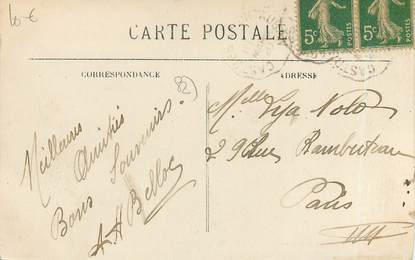 10€
CARTE POSTALE
5c 5c
CORRESPONDANCE
82
Meilleures
Amitiés
Bons Souvenirs.
A H Belloc
ADRESSE
Melle Lya Nolo
29 Rue Rambuteau
Paris